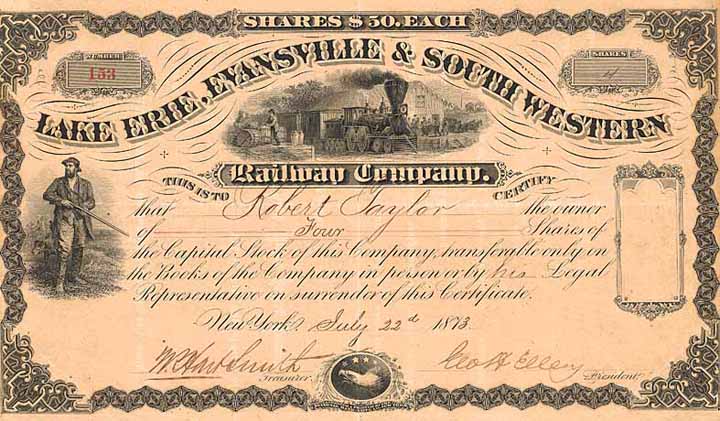 SHARES $50. EACH
NUMBER
153
SHARES
4
LAKE ERIE, EVANSVILLE & SOUTH WESTERN
Railway Company.
THIS IS TO CERTIFY
that Robert Taylor the owner
of Four Shares of
the Capital Stock of this Company, transferable only on
the Books of the Company in person or by his Legal
Representative on surrender of this Certificate.
New York July 22d 1873
Treasurer.
President